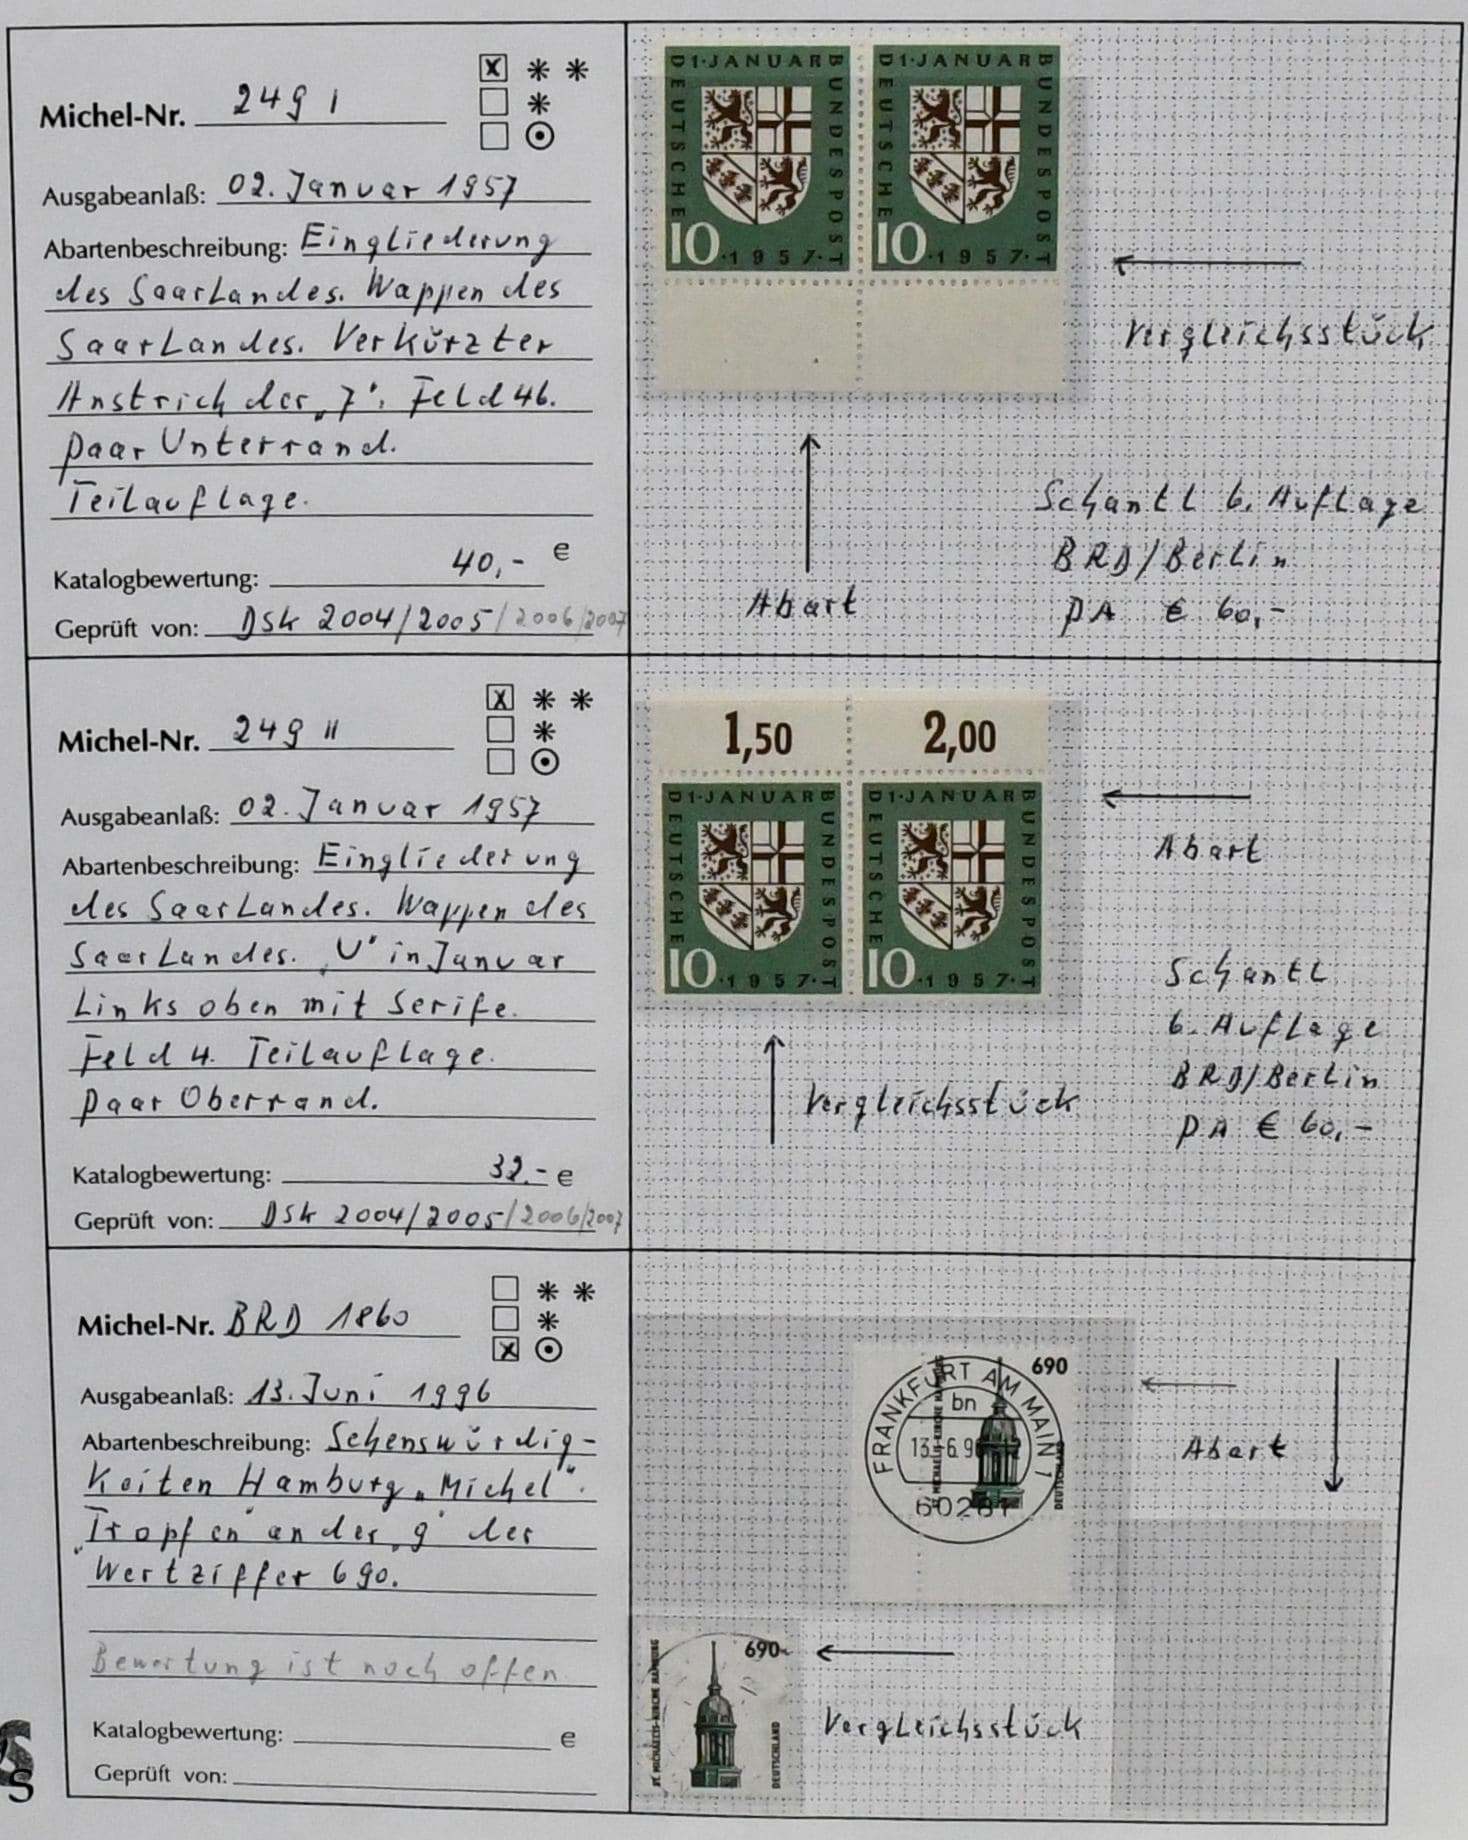 Michel-Nr. 249 I
Ausgabeanlaß: 02. Januar 1957
Abartenbeschreibung: Eingliederung
des Saarlandes. Wappen des
Saarlandes. Verkürzter
Anstrich der „7". Feld 46.
Paar Unterrand.
Teilauflage.
Katalogbewertung: 40,- €
Geprüft von: DSK 2004/2005/2006/2007
D1·JANUAR BUNDESPOST
DEUTSCHE
10 ·1957·
D1·JANUAR BUNDESPOST
DEUTSCHE
10 ·1957·
Vergleichsstück
Abart
Schantl 6. Auflage
BRD/Berlin
PA € 60,-
Michel-Nr. 249 II
Ausgabeanlaß: 02. Januar 1957
Abartenbeschreibung: Eingliederung
des Saarlandes. Wappen des
Saarlandes. „U" in Januar
Links oben mit Serife.
Feld 4. Teilauflage.
Paar Oberrand.
Katalogbewertung: 32.- €
Geprüft von: DSK 2004/2005/2006/2007
1,50 2,00
D1·JANUAR BUNDESPOST
DEUTSCHE
10 ·1957·
D1·JANUAR BUNDESPOST
DEUTSCHE
10 ·1957·
Abart
Vergleichsstück
Schantl
6. Auflage
BRD/Berlin
PA € 60,-
Michel-Nr. BRD 1860
Ausgabeanlaß: 13. Juni 1996
Abartenbeschreibung: Sehenswürdig-
keiten Hamburg „Michel".
„Tropfen" an der „9" der
Wertziffer 690.
Bewertung ist noch offen.
Katalogbewertung: €
Geprüft von:
690
FRANKFURT AM MAIN 1
bn
60281
DEUTSCHLAND
Abart
690
ST. MICHAELIS-KIRCHE HAMBURG
DEUTSCHLAND
Vergleichsstück